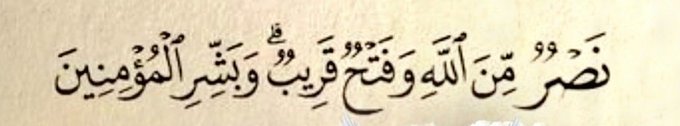 نَصْرٌ مِّنَ ٱللَّهِ وَفَتْحٌ قَرِيبٌ ۗ وَبَشِّرِ ٱلْمُؤْمِنِينَ